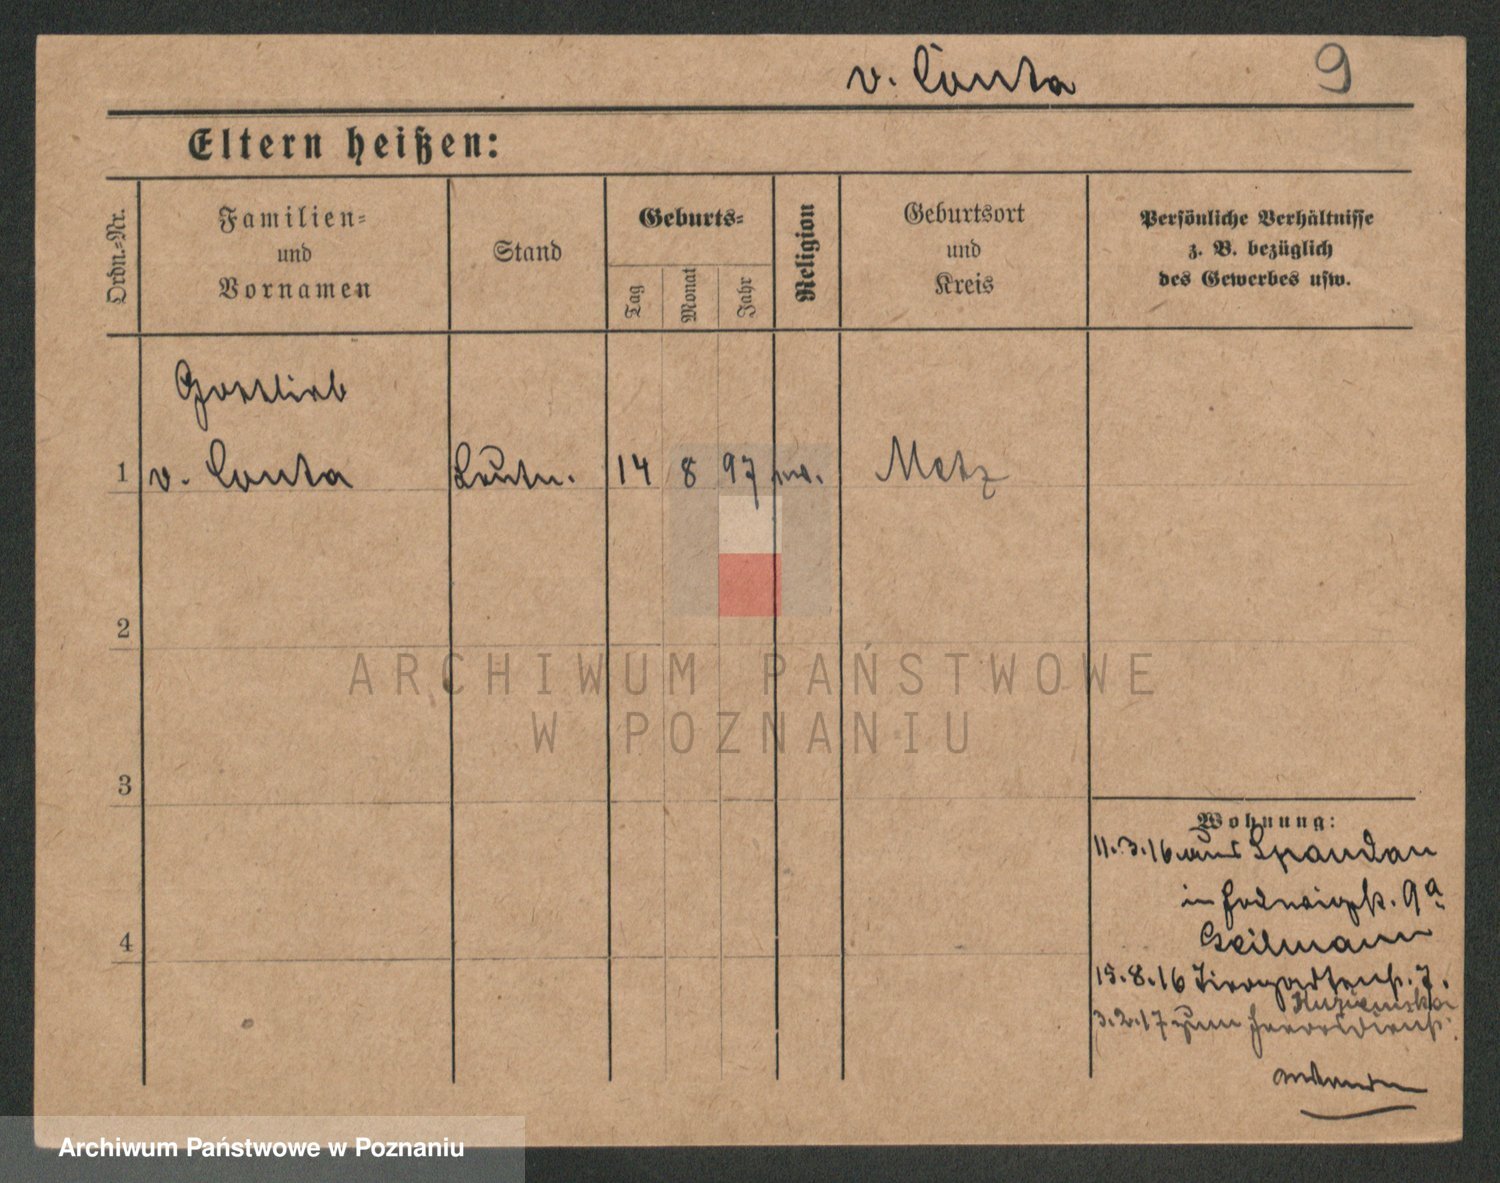 v. Conta 9
Eltern heißen:
Ordn.-Nr.
Familien-
und
Vornamen
Stand
Geburts-
Tag
Monat
Jahr
Religion
Geburtsort
und
Kreis
Persönliche Verhältnisse
z. B. bezüglich
des Gewerbes usw.
Gottlieb
1 v. Conta Leutn. 14 8 97 ev. Metz
2
3
4
Wohnung:
11.3.16 aus Spandau
in 9a
Heilmann
15.8.16 Tiergartenstr. 7.
3.2.17 zum Heeresdienst
ARCHIWUM PAŃSTWOWE
W POZNANIU
Archiwum Państwowe w Poznaniu